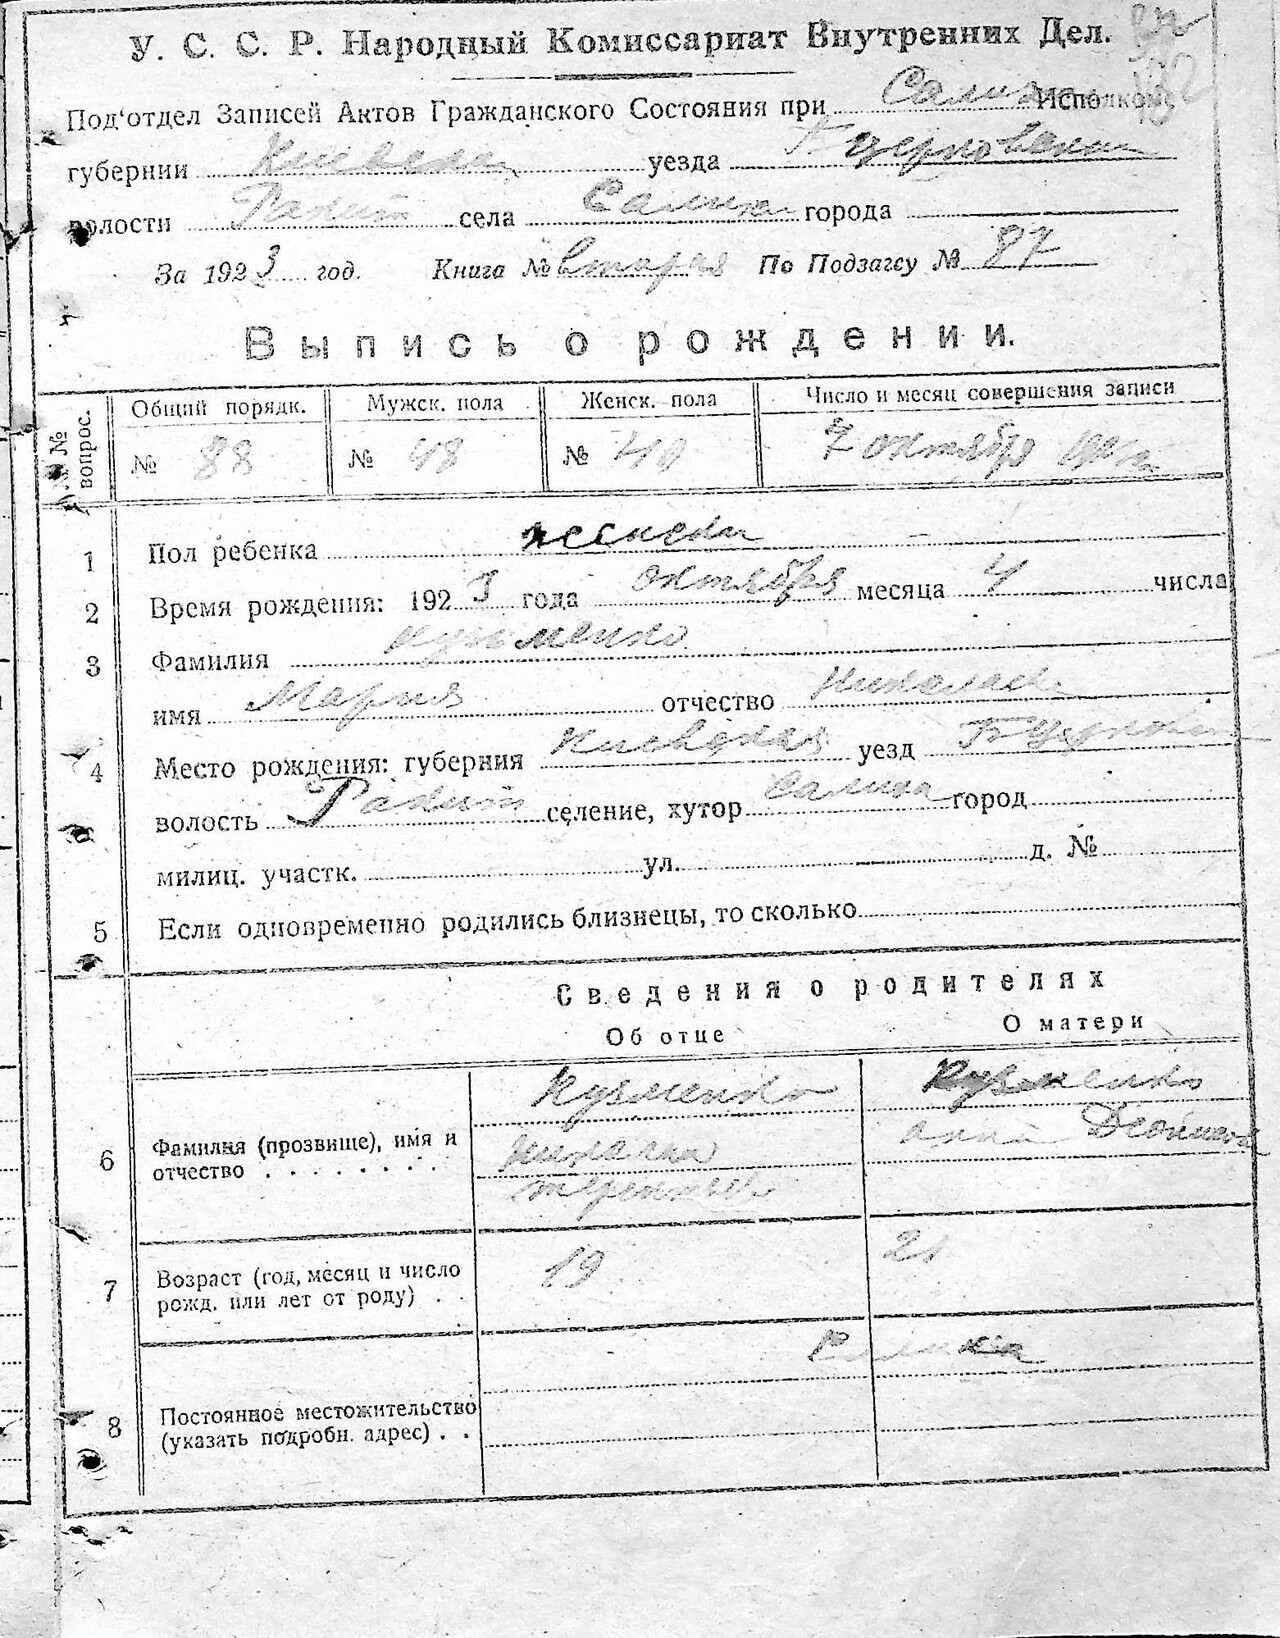 У. С. С. Р. Народный Комиссариат Внутренних Дел.
Под'отдел Записей Актов Гражданского Состояния при Исполком.
губернии Киевской уезда Бцерковский
волости Ракит села Салиха города
За 1923 год. Книга № вторая По Подзагсу № 87
Выпись о рождении.
№№ вопрос.
Общий порядк. Мужск. пола Женск. пола Число и месяц совершения записи
№ 88 № 48 № 40 7 октября
1 Пол ребенка женский
2 Время рождения: 1923 года октября месяца 4 числа
3 Фамилия Кузьменко
имя Мария отчество Николаев
4 Место рождения: губерния Киевская уезд Бцерковский
волость Ракит селение, хутор Салиха город
милиц. участк. ул. д. №
5 Если одновременно родились близнецы, то сколько
Сведения о родителях
Об отце О матери
6 Фамилия (прозвище), имя и отчество
Кузменко Кузменко
Николай Анна
терентьев
7 Возраст (год, месяц и число рожд. или лет от роду) . . 19 21
8 Постоянное местожительство (указать подробн. адрес) . . Салиха